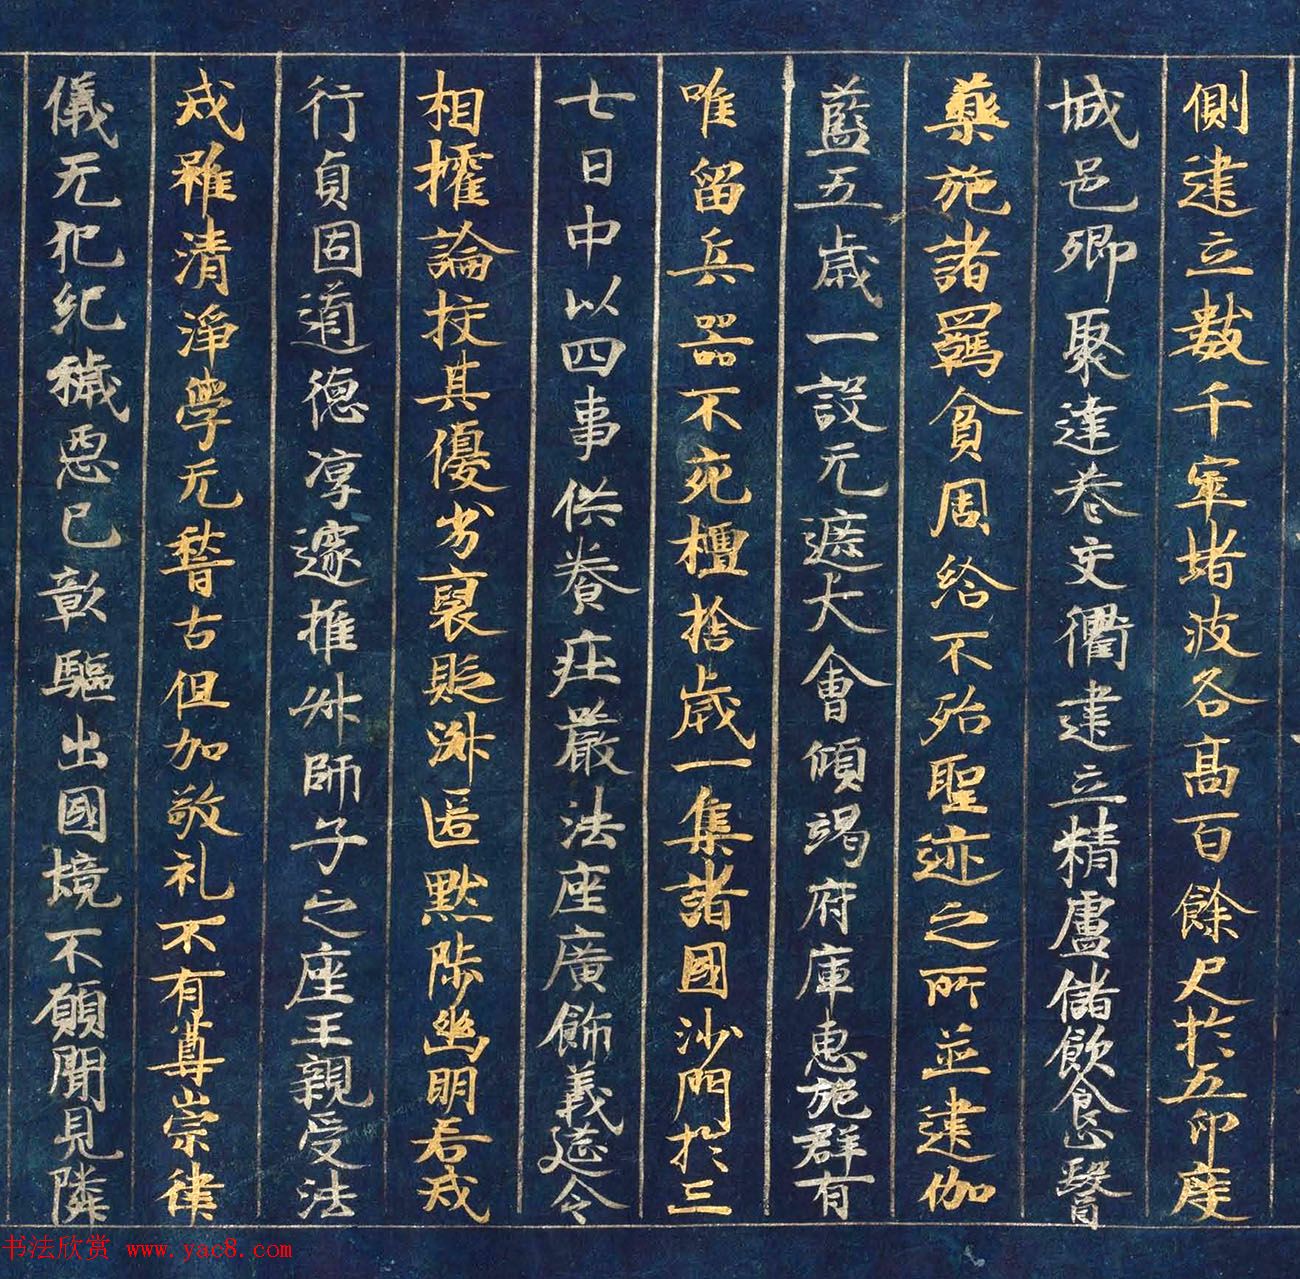 側建立數千窣堵波各高百餘尺扵五印度
城邑鄉聚達巷交衢建立精廬儲飲食止醫
藥施諸羈貧周給不殆聖迹之所並建伽
藍五歲一設无遮大會傾竭府庫惠施群有
唯留兵器不充檀捨歲一集諸國沙門扵三
七日中以四事供養莊嚴法座廣飾義筵令
相攉論挍其優劣襃貶淑慝黜陟幽明若戒
行貞固道德淳邃推昇師子之座王親受法
戒雖清淨學无稽古但加敬礼示有尊崇律
儀无犯紀穢惡已彰驅出國境不願聞見隣
书法欣赏 www.yac8.com